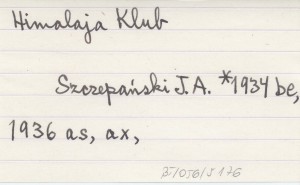 Himalaja Klub
Szczepański J.A. *1934 be,
1936 as, ax,